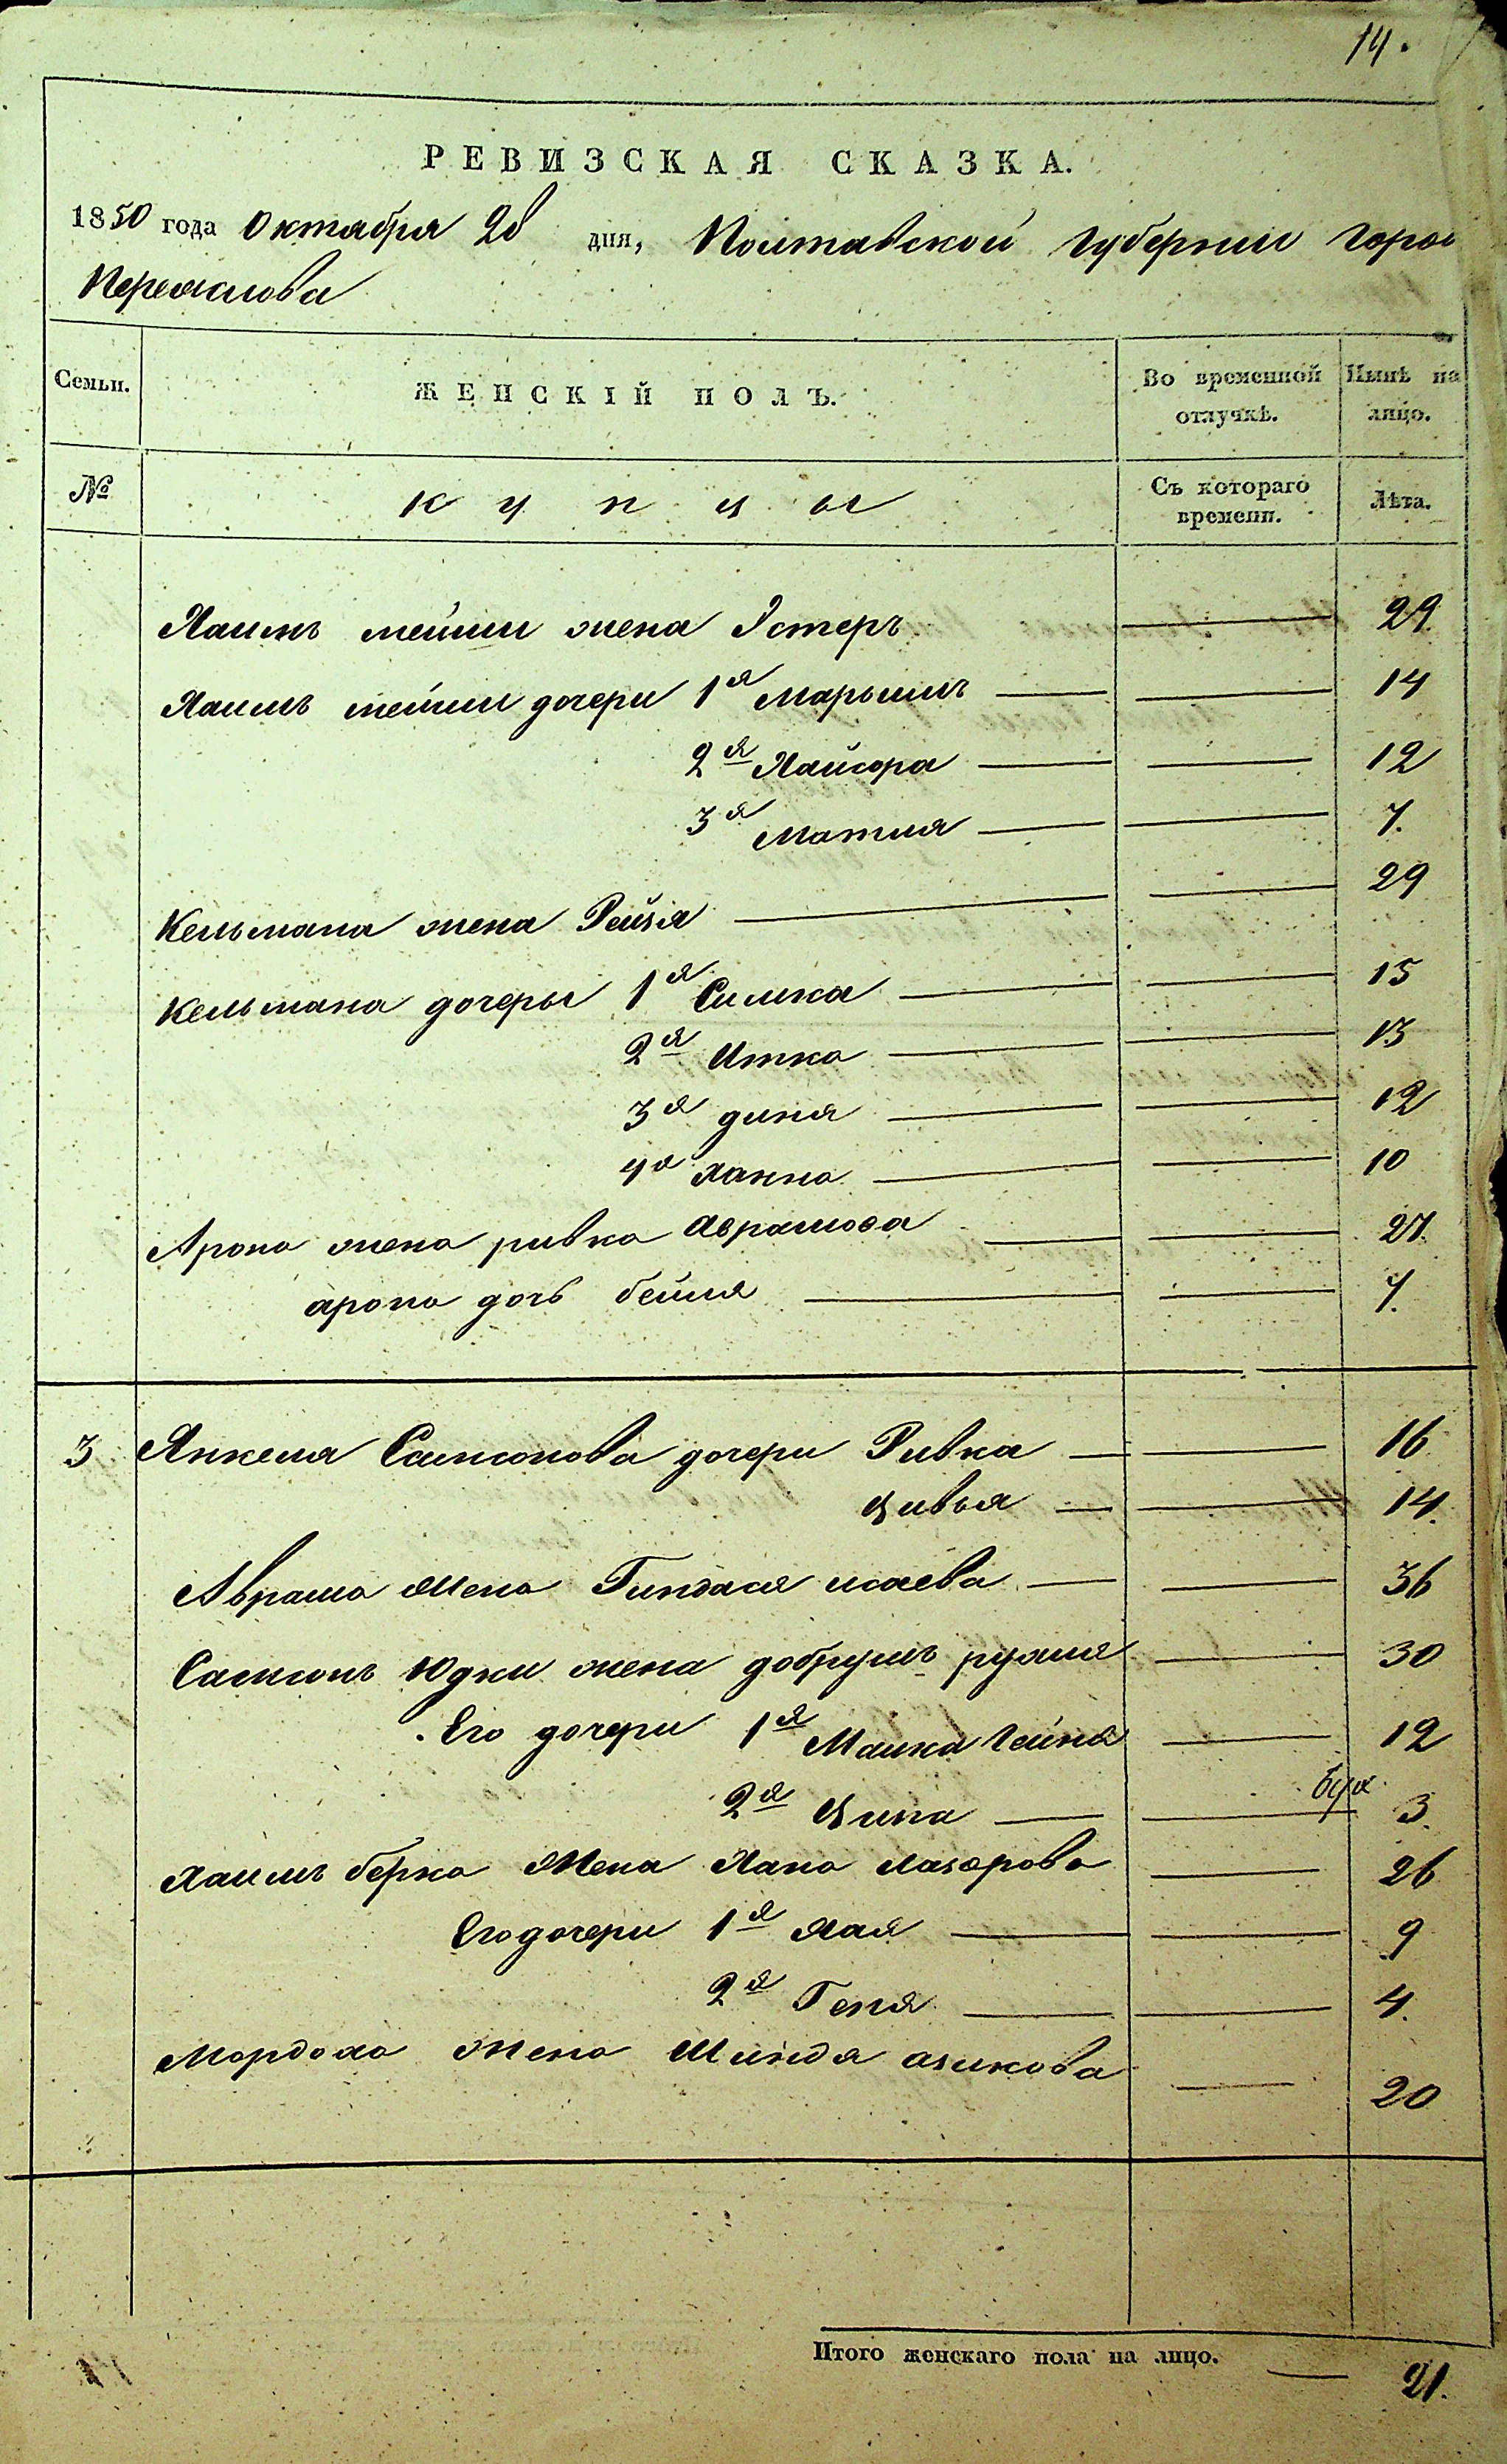 14.
РЕВИЗСКАЯ СКАЗКА.
1850 года Октября 28 дня, Полтавской Губернии горо
Переяслова
Семьи.
ЖЕНСКІЙ ПОЛЪ.
Во временной отлучкѣ.
Нынѣ на лицо.
№
купцы
Съ котораго времени.
Лѣта.
Хаимъ мейши жена Эстеръ 29
Хаимъ мейши дочери 1я Марьимъ 14
2я Хайсора 12
3я Матля 7.
Кельмана жена Рейзя 29
Кельмана дочеры 1я Симка 15
2я Итка 13
3я диня 12
4я Ханна 10
Арона жена ривка Аврамова 27.
арона дочь бейля 7.
3 Янкеля Самсонова дочери Ривка 16
Цивья 14.
Аврама жена Гиндася исаева 36
Самсонъ Юдки жена добрушъ рухля 30
Его дочери 1я Малка Гейня 12
2я Ципа 3.
Хаимъ берка Жена Хана лазорова 26
Его дочери 1я Хая 9
2я Геня 4.
Мордоха жена Минdя азикова 20
Итого женскаго пола на лицо. 21.